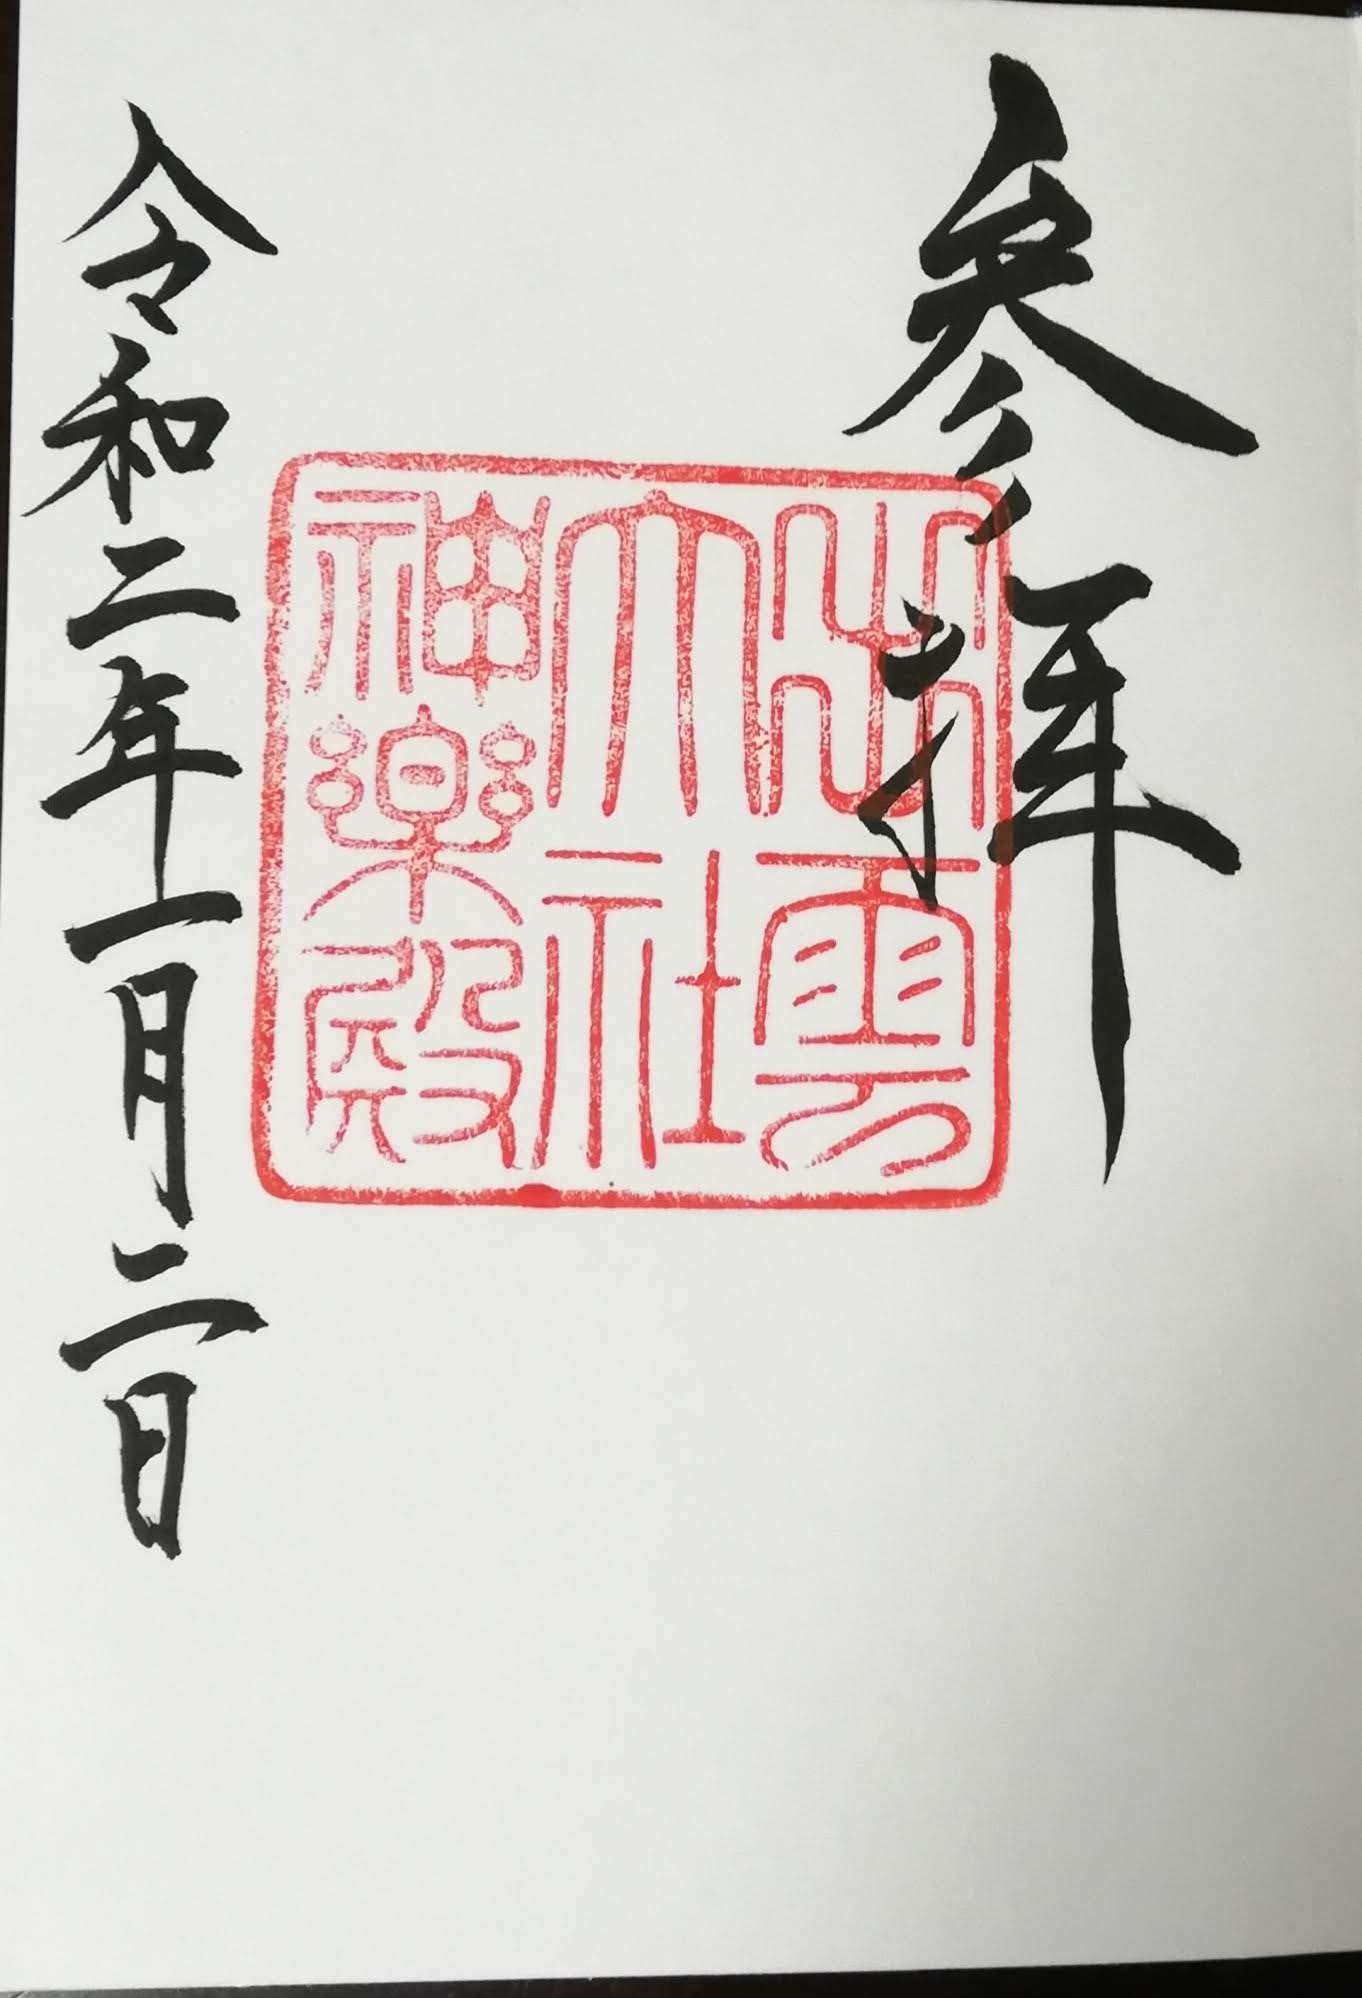 参拝
出雲
大社
神楽殿
令和二年一月二日